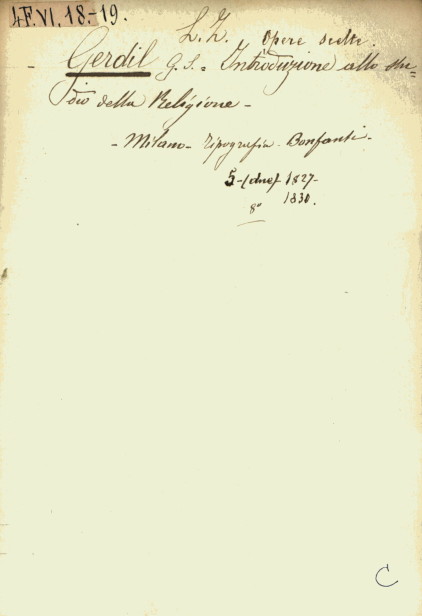 4F.VI.18.-19.
L. Z. Opere scelte.
- Gerdil G. S. = Introduzione allo stu=
dio della Religione -
- Milano - Tipografia - Bonfanti -
5 - (due) - 1827 -
1830.
8°
C